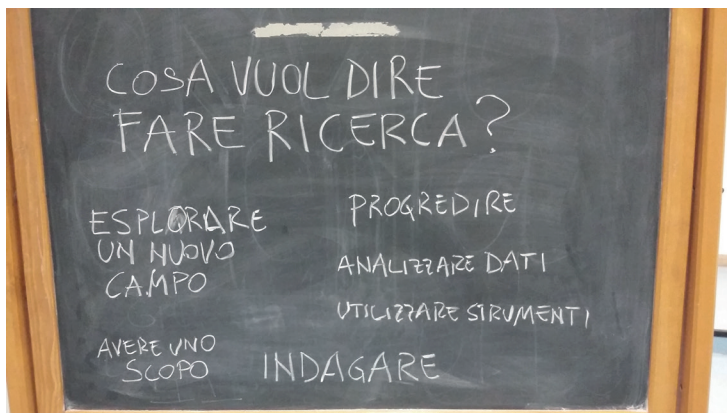 COSA VUOL DIRE
FARE RICERCA?
ESPLORARE
UN NUOVO
CAMPO
PROGREDIRE
ANALIZZARE DATI
UTILIZZARE STRUMENTI
AVERE UNO
SCOPO
INDAGARE